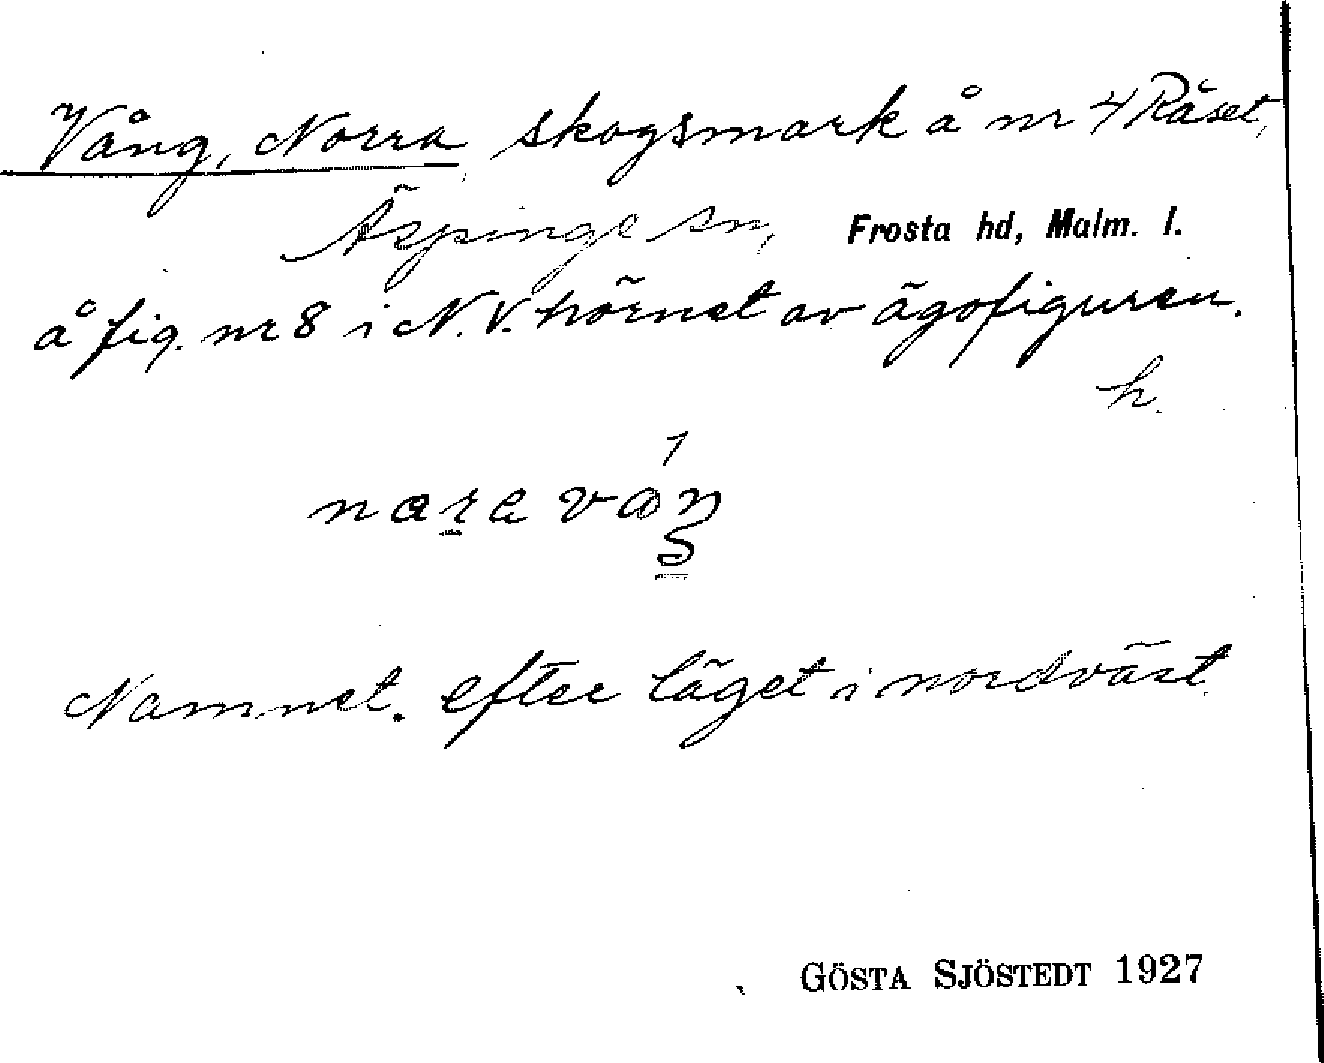 Vång, Norra skogsmark å nr 4 Råset,
Äspinge sn, Frosta hd, Malm. l.
å fig. nr 8 i N.V. hörnet av ägofiguren.
h.
Namnet. efter läget i nordväst
GÖSTA SJÖSTEDT 1927